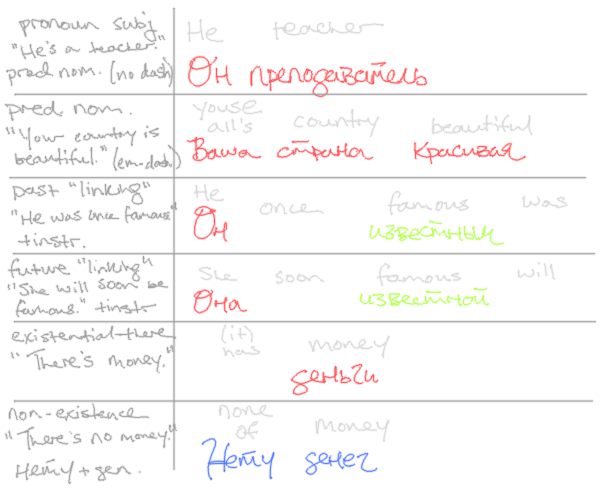 pronoun subj
"He's a teacher."
pred nom. (no dash)
He teacher
Он преподаватель
pred nom.
"Your country is
beautiful." (em-dash)
youse
all's country beautiful
Ваша страна красивая
past "linking"
"He was once famous"
+instr.
He once famous was
Он известным
future "linking"
"She will soon be
famous." +instr
She soon famous will
Она известной
existential-there
"There's money."
(it)
has money
деньги
non-existence
"There's no money."
Нету + gen.
none
of money
Нету денег